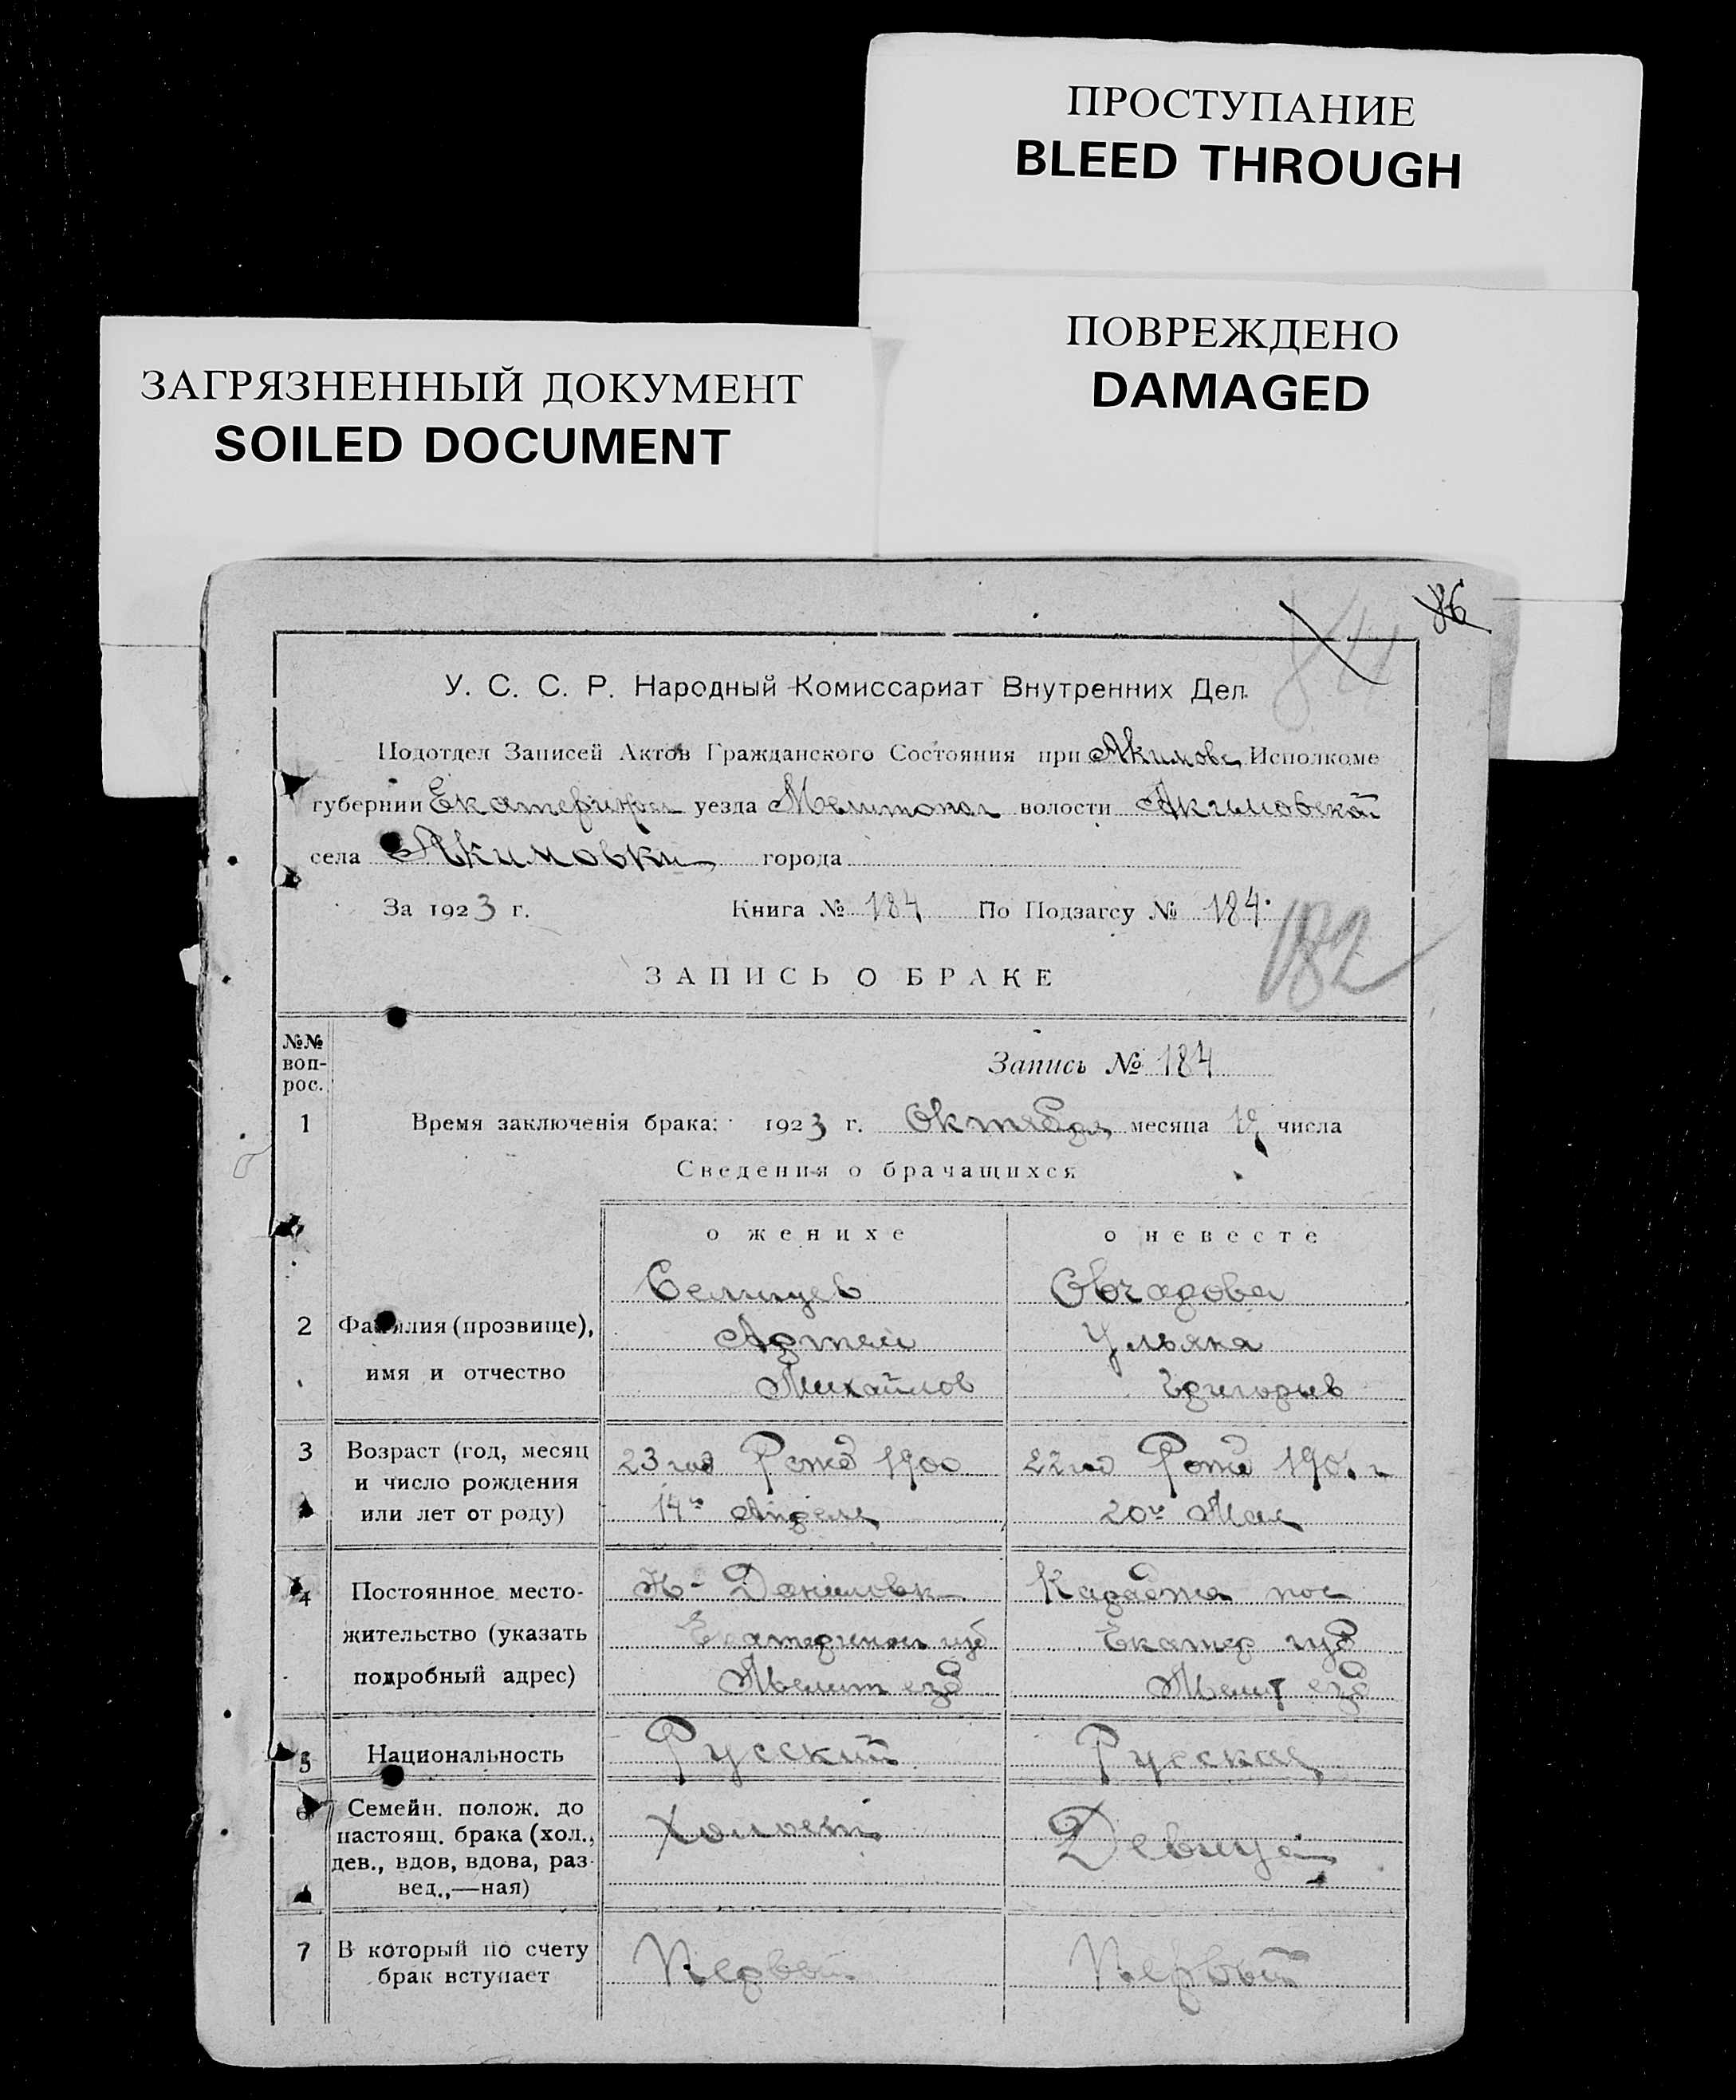 ПРОСТУПАНИЕ
BLEED THROUGH
ПОВРЕЖДЕНО
DAMAGED
ЗАГРЯЗНЕННЫЙ ДОКУМЕНТ
SOILED DOCUMENT
86
У. С. С. Р. Народный Комиссариат Внутренних Дел.
Подотдел Записей Актов Гражданского Состояния при Акимовс Исполкоме
губернии уезда Мелитопол волости Акимовской
села Акимовки города
За 1923 г. Книга № 184 По Подзагсу № 184.
182
ЗАПИСЬ О БРАКЕ
№№ воп-рос.
Запись № 184
1 Время заключенія брака: 1923 г. Октября месяца 19 числа
Сведения о брачащихся
о женихе о невесте
Селищев Овчарова
2 Фамилия (прозвище), Артем Ульяна
имя и отчество Михайлов Григорьев
3 Возраст (год, месяц 23 год Рожд 1900 22 год Рожд 1901 г
и число рождения
или лет от роду) 14го Апреля 20го Мая
4 Постоянное место- Н-Даниловк пос
жительство (указать губ Екатер губ
подробный адрес) Мелит Мелит
5 Национальность Русский Русская
6 Семейн. полож. до
настоящ. брака (хол., Холост Девица
дев., вдов, вдова, раз-
вед.,—ная)
7 В который по счету Первый Первый
брак вступает